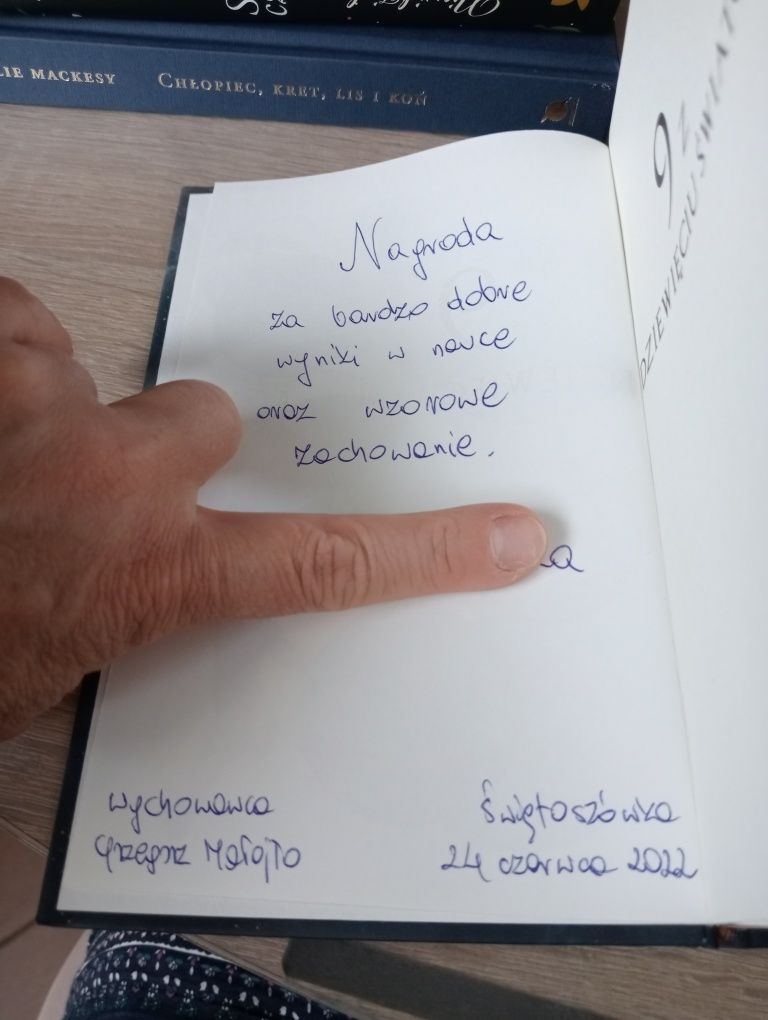 LIE MACKESY CHŁOPIEC, KRET, LIS I KOŃ
9 Z
DZIEWIĘCIU ŚWIATÓ
Nagroda
za bardzo dobre
wyniki w nauce
oraz wzorowe
zachowanie.
wychowawca
Grzegorz
Świętoszówka
24 czerwca 2022